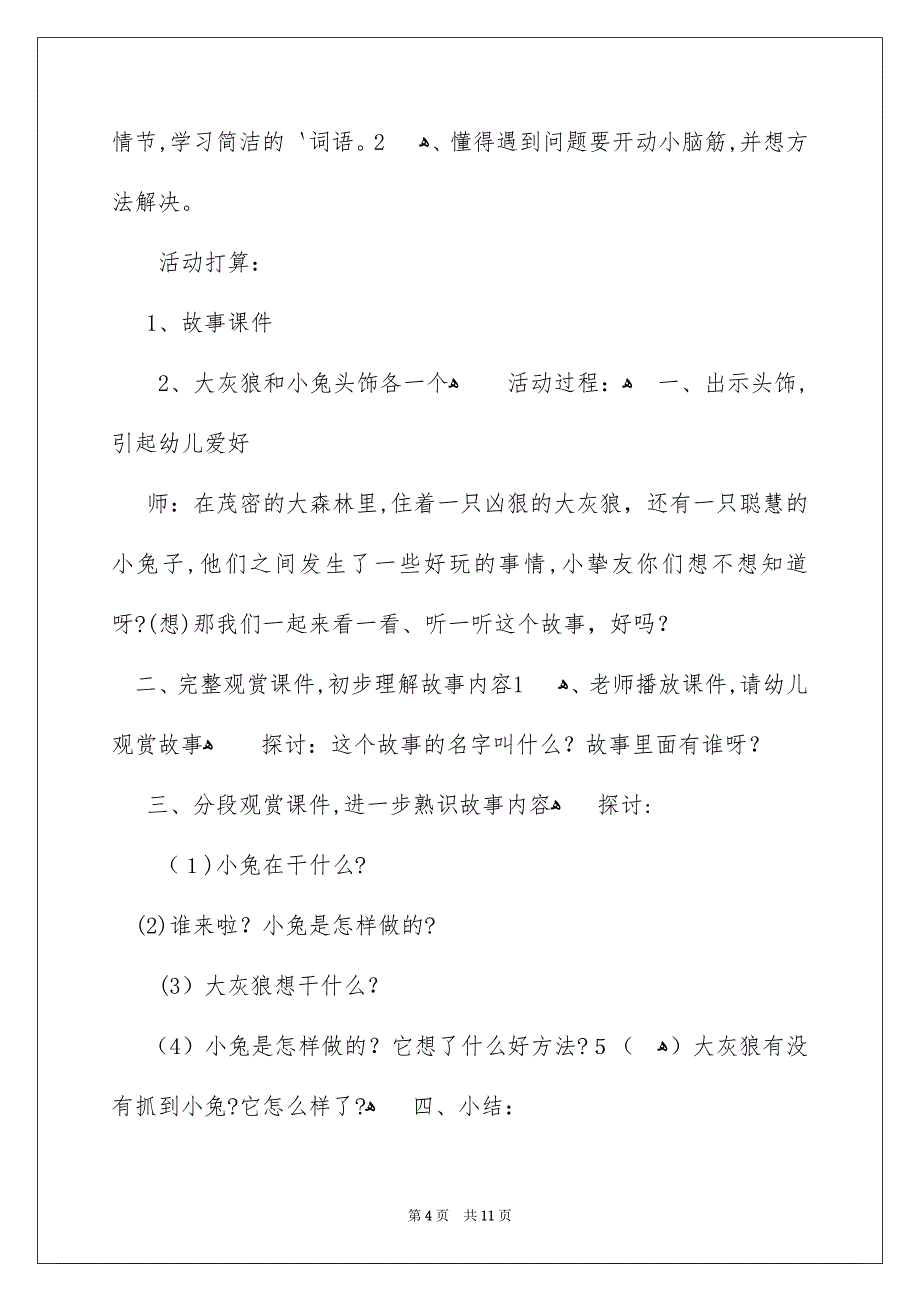 情节,学习简洁的‵词语。2 ﻫ、懂得遇到问题要开动小脑筋,并想方
法解决。
活动打算：
1、故事课件
2、大灰狼和小兔头饰各一个ﻫ 活动过程：ﻫ 一、出示头饰,
引起幼儿爱好
师：在茂密的大森林里,住着一只凶狠的大灰狼，还有一只聪慧的
小兔子,他们之间发生了一些好玩的事情,小挚友你们想不想知道
呀?(想)那我们一起来看一看、听一听这个故事，好吗？
二、完整观赏课件,初步理解故事内容1 ﻫ、老师播放课件,请幼儿
观赏故事ﻫ 探讨：这个故事的名字叫什么？故事里面有谁呀？
三、分段观赏课件,进一步熟识故事内容ﻫ 探讨:
（１)小兔在干什么?
(2)谁来啦？小兔是怎样做的?
(3）大灰狼想干什么？
（4）小兔是怎样做的？它想了什么好方法?５（ ﻫ）大灰狼有没
有抓到小兔?它怎么样了?ﻫ 四、小结：
第 4 页 共 11 页